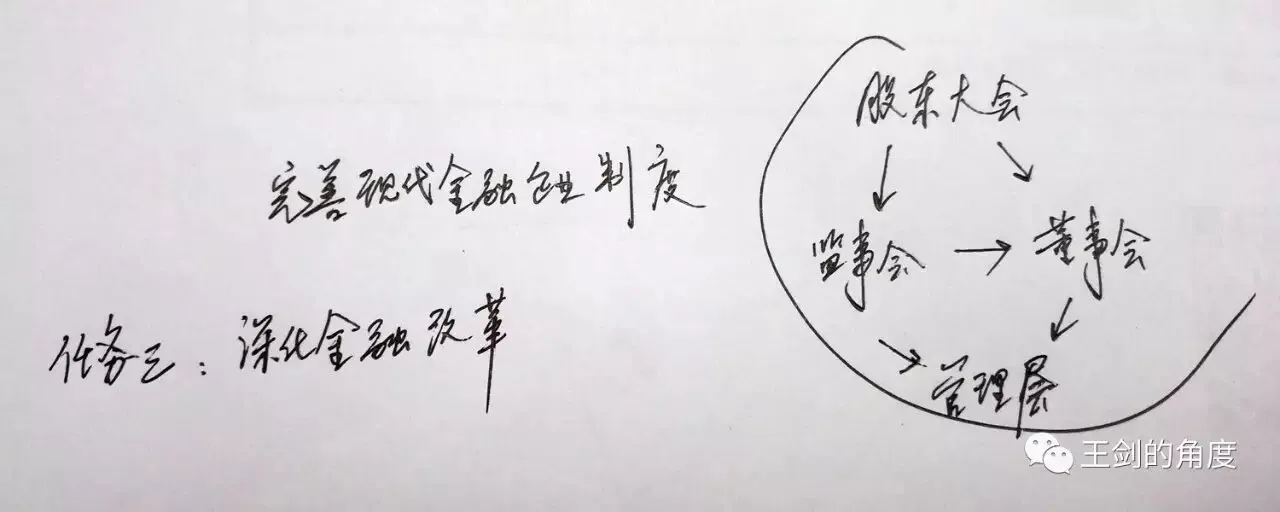 完善现代金融企业制度
任务三：深化金融改革
股东大会
监事会
董事会
管理层
王剑的角度